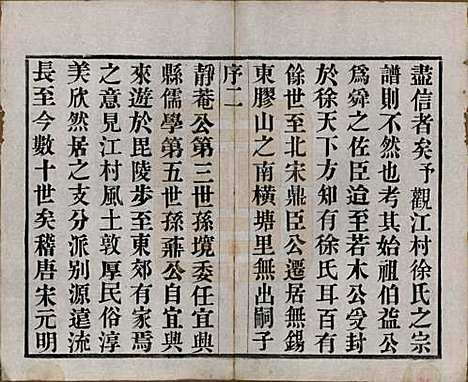 盡信者矣予觀江村徐氏之宗
譜則不然也考其始祖伯益公
爲舜之佐臣這至若木公受封
於徐天下方知有徐氏耳百有
餘世至北宋鼎臣公遷居無錫
東膠山之南橫塘里無出嗣子
序二
靜菴公第三世孫境委任宜興
縣儒學第五世孫鼒公自宜興
來遊於毘陵步至東郊有家焉
之意見江村風土敦厚民俗淳
美欣然居之支分派別源遠流
長至今數十世矣稽唐宋元明